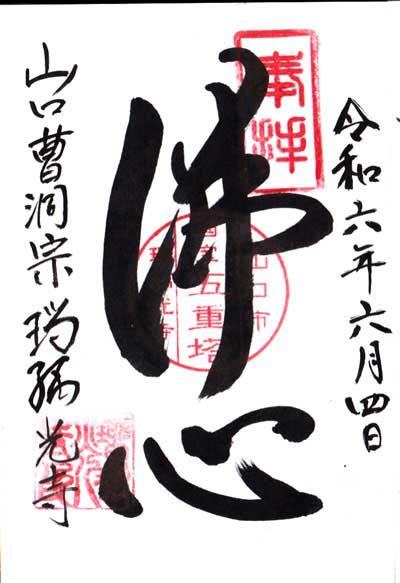 奉拝
令和六年六月四日
佛心
山口市
国宝
五重塔
瑠璃光寺
山口曹洞宗瑠璃光寺